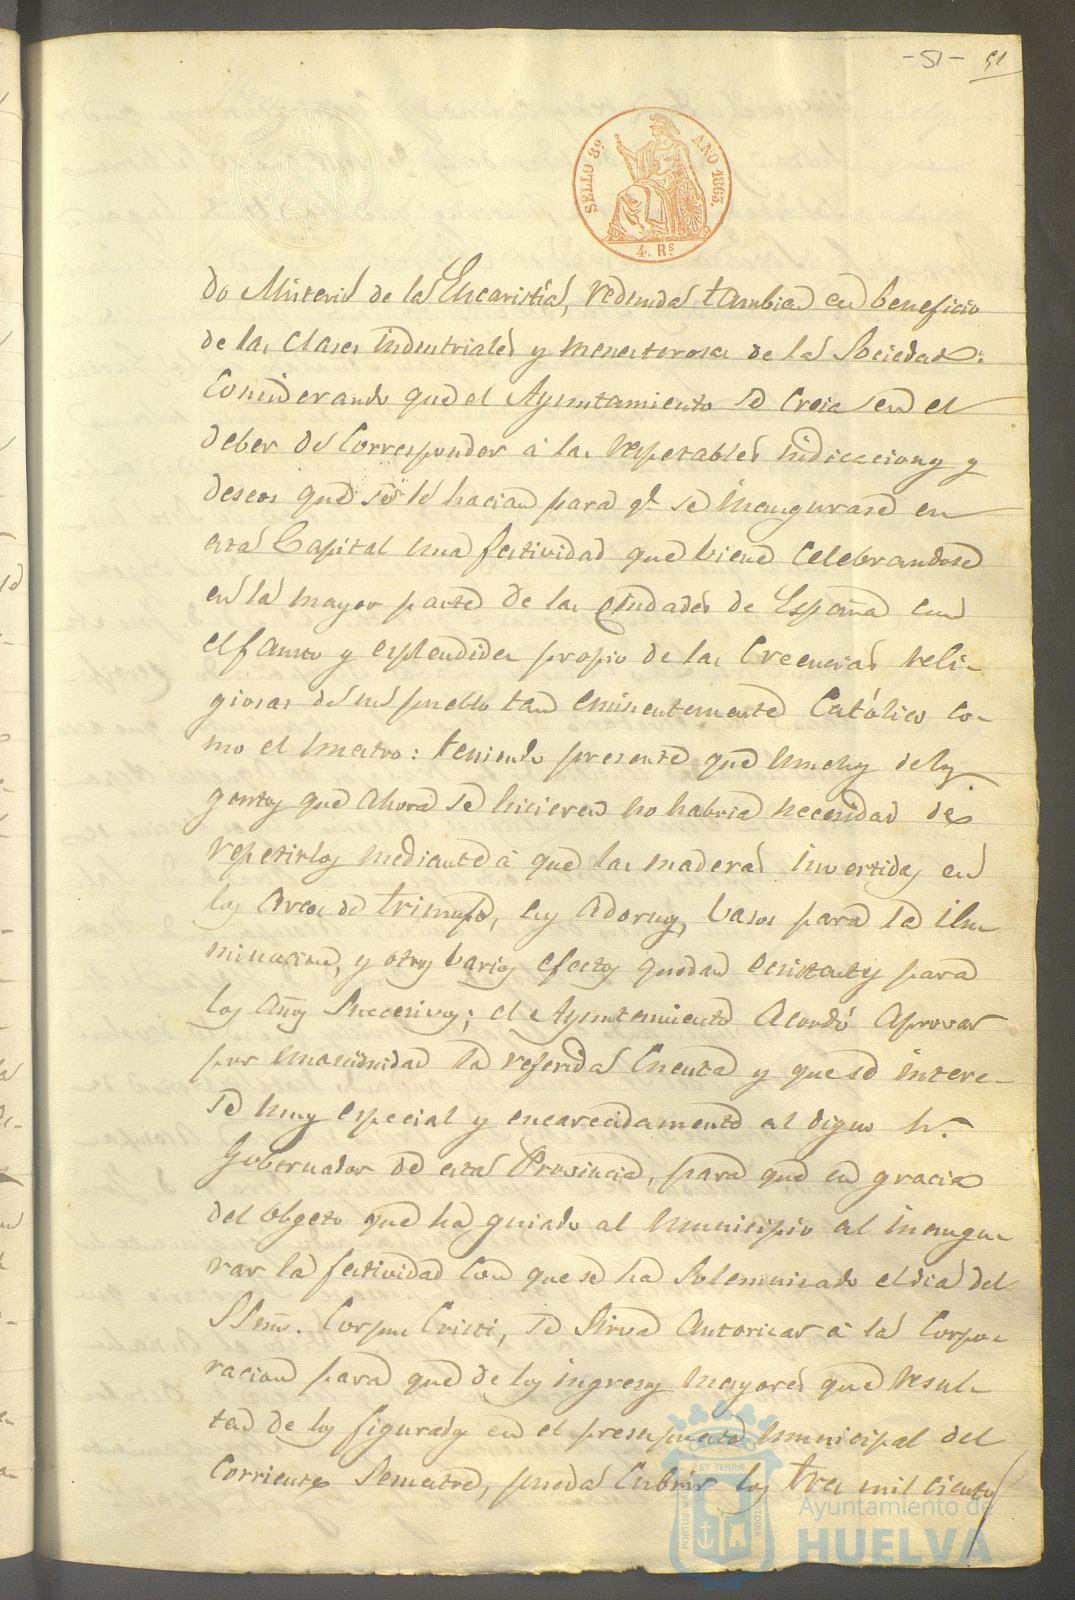 -51- 51
SELLO 8º AÑO 1863.
4. Rs
do Misterio de la Eucaristia, redunda tambien en beneficio
de las clases industriales y menesterosas de la Sociedad:
Considerando que el Ayuntamiento se creia en el
deber de corresponder á las respetables indicaciones y
deseos que se le hacian para q.e se inaugurase en
esta Capital una festividad que viene celebrandose
en la mayor parte de las Ciudades de España con
el fausto y esplendidez propio de las Creencias reli-
giosas de un pueblo tan eminentemente Católico co-
mo el nuestro: teniendo presente que muchos de los
gastos que ahora se hicieron no habria necesidad de
repetirlos mediante á que las maderas invertidas en
los Arcos de triunfo, los adornos, basos para la ilu
minacion, y otros barios efectos quedan existentes para
los años Succesivos; el Ayuntamiento Acordó Aprovar
por unanimidad la referida Cuenta y que se intere-
se muy especial y encarecidamente al digno Sr.
Gobernador de esta Provincia, para que en gracia
del obgeto que ha guiado al Municipio al inaugu
rar la festividad con que se ha Solemnizado el dia del
SSmo. Corpus Cristi, se sirva Autorizar á la Corpo
racion para que de los ingresos mayores que resul
tan de los figurados en el presupuesto municipal del
Corriente Semestre, pueda Cubrir los tres mil ciento
PORTUS MARIS ET TERRAE CUSTODIA
Ayuntamiento de
HUELVA